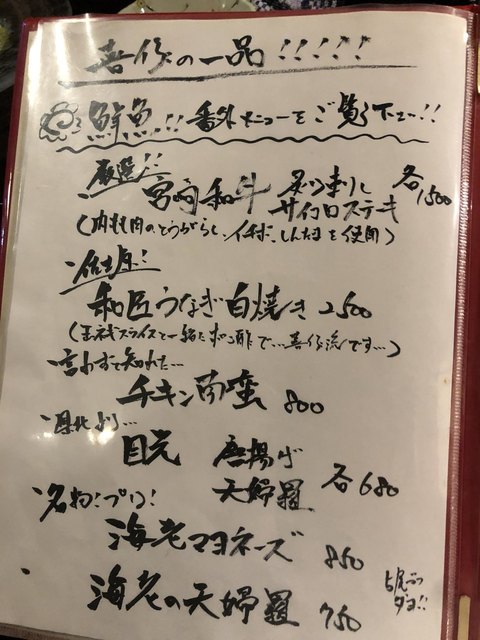 喜作の一品!!!!!
鮮魚!!! 番外メニューをご覧下さい!!
厳選!! 宮崎和牛 炙り刺し 各1,500
サイコロステーキ
(内もも肉のとうがらし、イチボ、しんたまを使用)
和匠うなぎ白焼き 2500
(玉ねぎスライスと一緒にポン酢で...喜作流です...)
言わずと知れた...
チキン南蛮 800
目光 唐揚げ 各680
天婦羅
名物!プリ!
海老マヨネーズ 850
海老の天婦羅 750